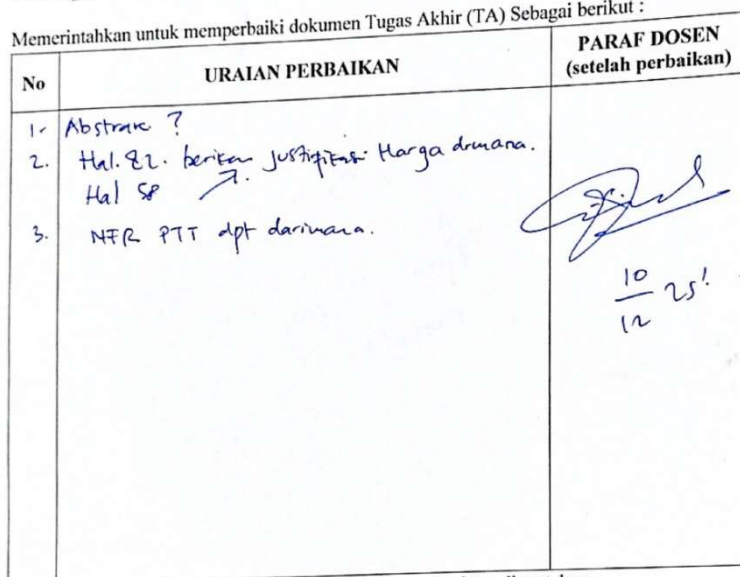 Memerintahkan untuk memperbaiki dokumen Tugas Akhir (TA) Sebagai berikut :
No
URAIAN PERBAIKAN
PARAF DOSEN
(setelah perbaikan)
1. Abstrak ?
2. Hal. 82. berikan Justifikasi Harga dimana.
Hal 58
3. NFR PTT dpt darimana.
10
12 25'